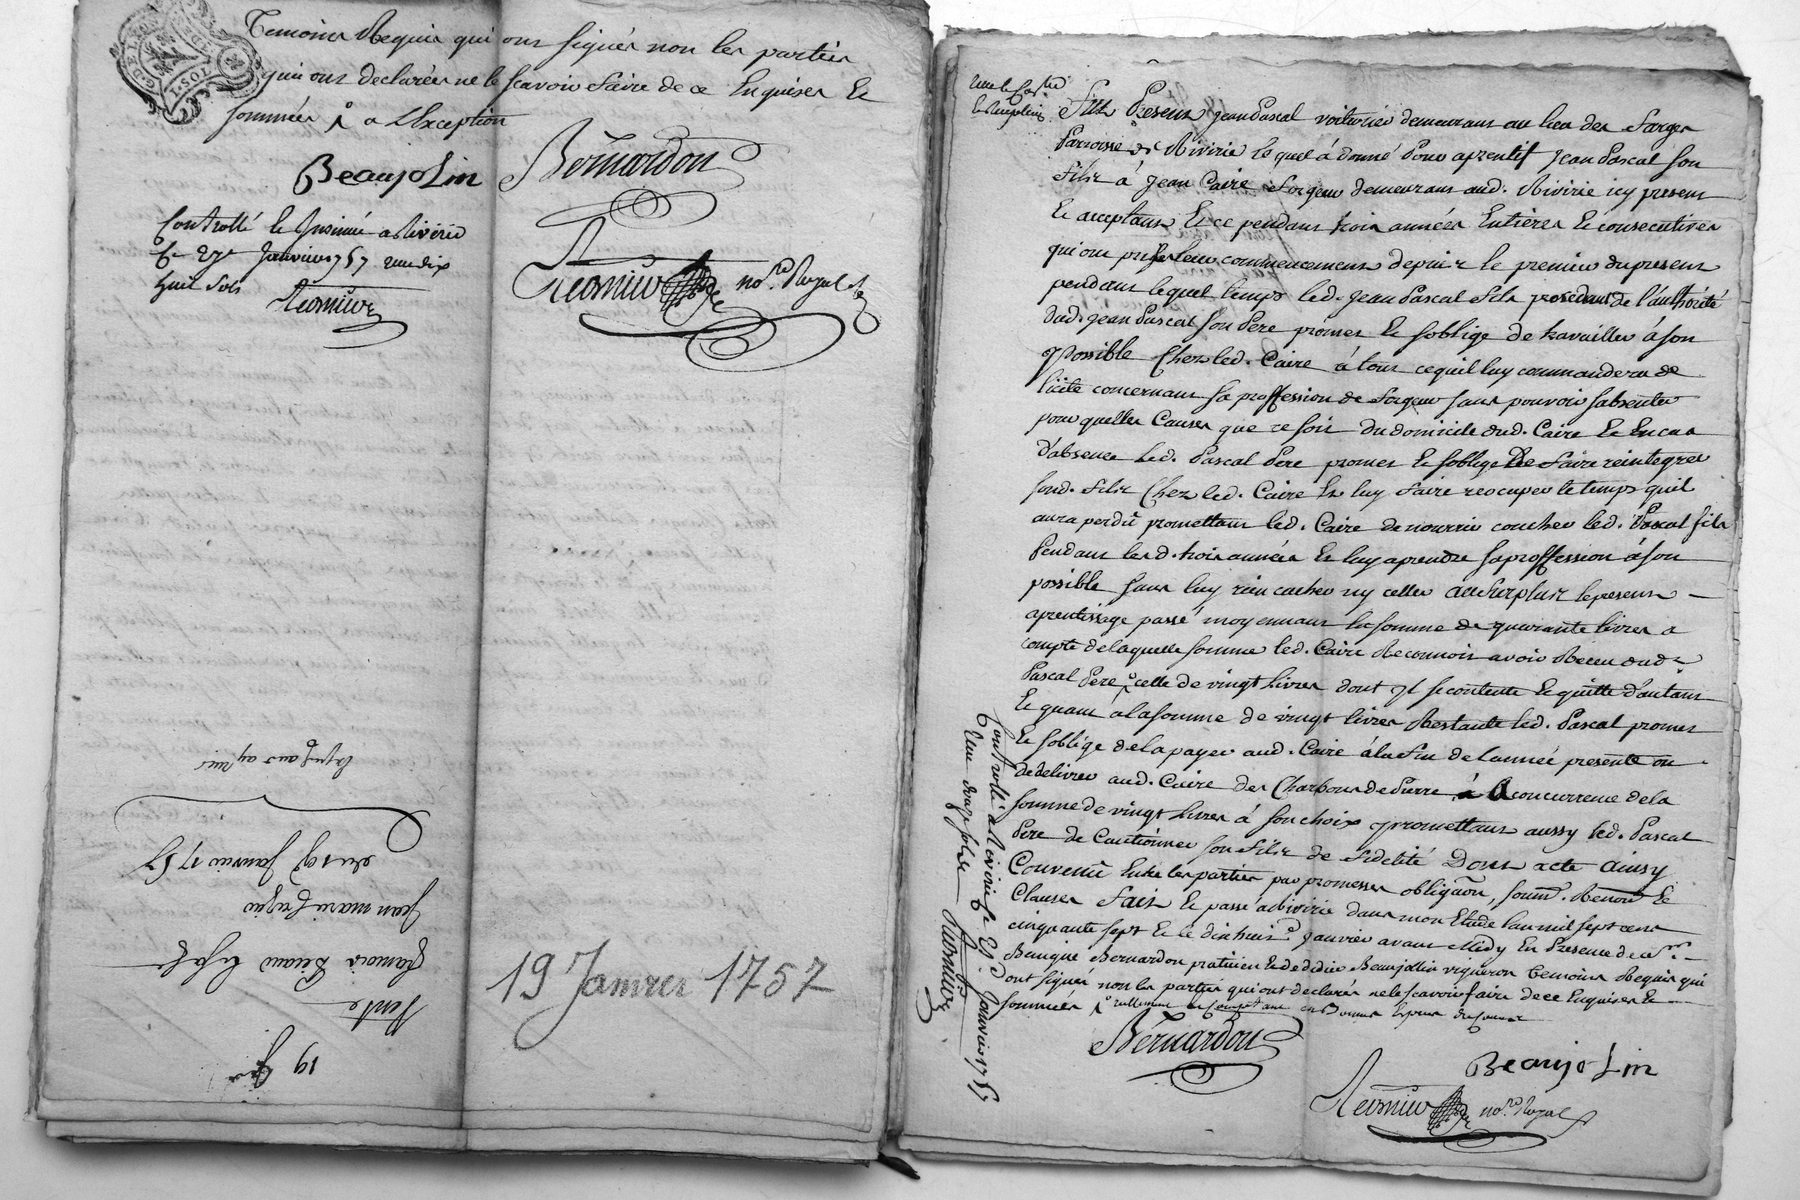 Temoins Requis qui ont signés non les parties
qui ont declarées ne le scavoir faire de ce Enquises Et
sommées a L'Exception
Beaujolin Bernardon
Controllé Et Insinué a Riverie
Le 27e Janvier 1757 Reçu dix
huit sols
no.re Royal
du 19e Janvier 1757
Jean marie
françois
Vente
19 Janvier 1757
Fut Present Jean Pascal voiturier demeurant au lieu des farges
Paroisse de Riverie lequel á donné Pour aprentif Jean Pascal son
fils á Jean Caire forgeur demeurant aud. Riverie icy present
Et acceptant Et ce pendant trois années Entières Et consecutives
qui ont pris leur commencement depuis le premier du present
pendant lequel temps led. Jean Pascal fils procedant de l'authorité
dud. Jean Pascal son Pere promet Et s'oblige de travailler á son
Possible Chez led. Caire á tout ce quil luy commandera de
licite concernant sa proffession de forgeur sans pouvoir s'absenter
pour quelles Causes que ce soit du domicile dud. Caire Et En cas
d'absence led. Pascal Pere promet Et s'oblige De faire reintegrer
sond. fils Chez led. Caire Et luy faire reocuper le temps quil
aura perdû promettant led. Caire de nourrir coucher led. Pascal fils
Pendant lesd. trois années Et luy aprendre sa proffession á son
possible sans luy rien cacher ny celler au surplus le present
aprentissage passé moyennant la somme de quarante livres a
compte de laquelle somme led. Caire Reconnoit avoir Receu dud.
Pascal Pere celle de vingt livres dont Il se contente Et quitte d'autant
Et quant á la somme de vingt livres Restante led. Pascal promet
Et s'oblige de la payer aud. Caire á la fin de l'année presente ou
de delivrer aud. Caire des Charbons de Pierre á concurrence de la
somme de vingt livres á son choix promettant aussy led. Pascal
Pere de Cautionner son fils de fidelité Dont acte Ainsy
Convenû Entre les parties par promesses obligaôn, soum. Renon Et
Clauses fait Et passé a Riverie dans mon Etude l'an mil sept cent
cinquante sept Et le dix huit Janvier avant Midy En Presence de Sr.
Benigne Bernardon praticien Et de didier Beaujollin vigneron Temoins Requis qui
ont signés non les parties qui ont declarés ne le scavoir faire de ce Enquises Et
sommées
Bernardon
Beaujolin
no.re Royal
Controllé a Riverie le Janvier 1757
Reçu douze sols